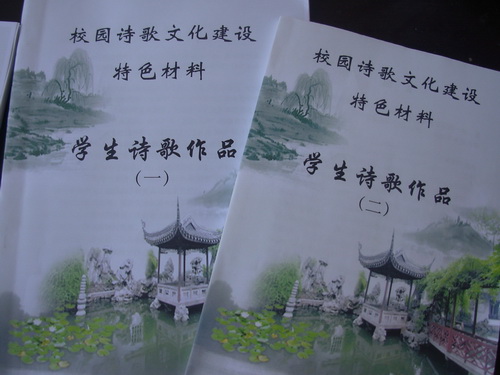 校园诗歌文化建设
特色材料
学生诗歌作品
(一)
校园诗歌文化建设
特色材料
学生诗歌作品
(二)